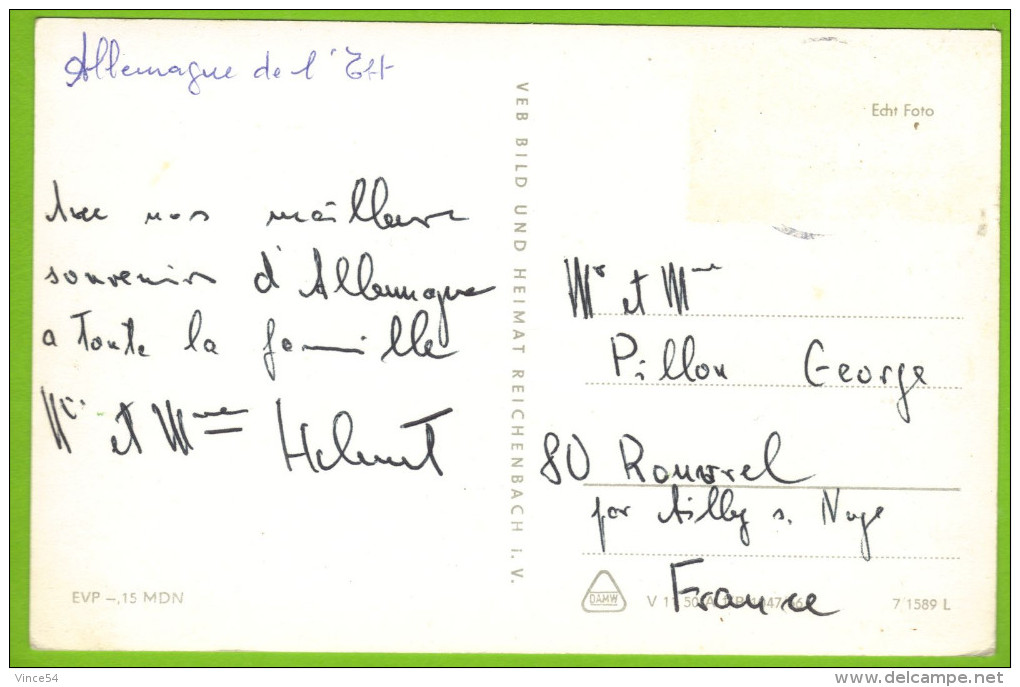 Allemagne de l'Est
Avec nos meilleurs
souvenirs d'Allemagne
a Toute la famille
Mr et Mme Helmut
VEB BILD UND HEIMAT REICHENBACH i. V.
Echt Foto
Mr et Mme
Pillon George
80 Rouvrel
par Ailly s. Noye
France
EVP –,15 MDN
DAMW
V 11 50
7/1589 L
Vince54
www.delcampe.net